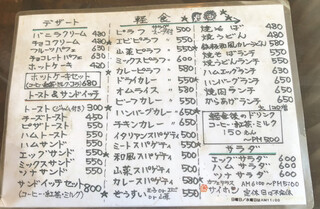 デザート
バニラクリーム 480
チョコクリーム 480
フルーツパフェ 630
チョコレートパフェ 630
ホットケーキ 480
ホットケーキセット
(コーヒー・紅茶・ミルク) 680
トースト&サンドイッチ
トースト(ジャム付き) 300
チーズトースト 550
ピザトースト 550
ハムトースト 550
ハムサンド 550
エッグサンド 550
ミックスサンド 550
ツナサンド 550
サンドイッチセット 800
(コーヒー・紅茶・ミルク)
軽食
ピラフ 500
エビピラフ 550
山菜ピラフ 550
ミックスピラフ 600
カレーピラフ 550
ドライカレー 550
オムライス 580
ビーフカレー 550
ハンバーグカレー
チキンカレー 650
イタリアンスパゲティ 550
ミートスパゲティ 550
和風スパゲティ 550
山菜スパゲティ 550
カレースパゲティ 550
ぞうすい 550
焼そば 480
焼うどん 480
焼そばランチ
焼うどんランチ
ハムエッグランチ
ハンバーグランチ
焼肉ランチ
からあげランチ
軽食後のドリンク
コーヒー・紅茶・ミルク
150えん
〜PM5:00
サラダ
エッグサラダ 600
ハムサラダ 600
ツナサラダ 600
定休日